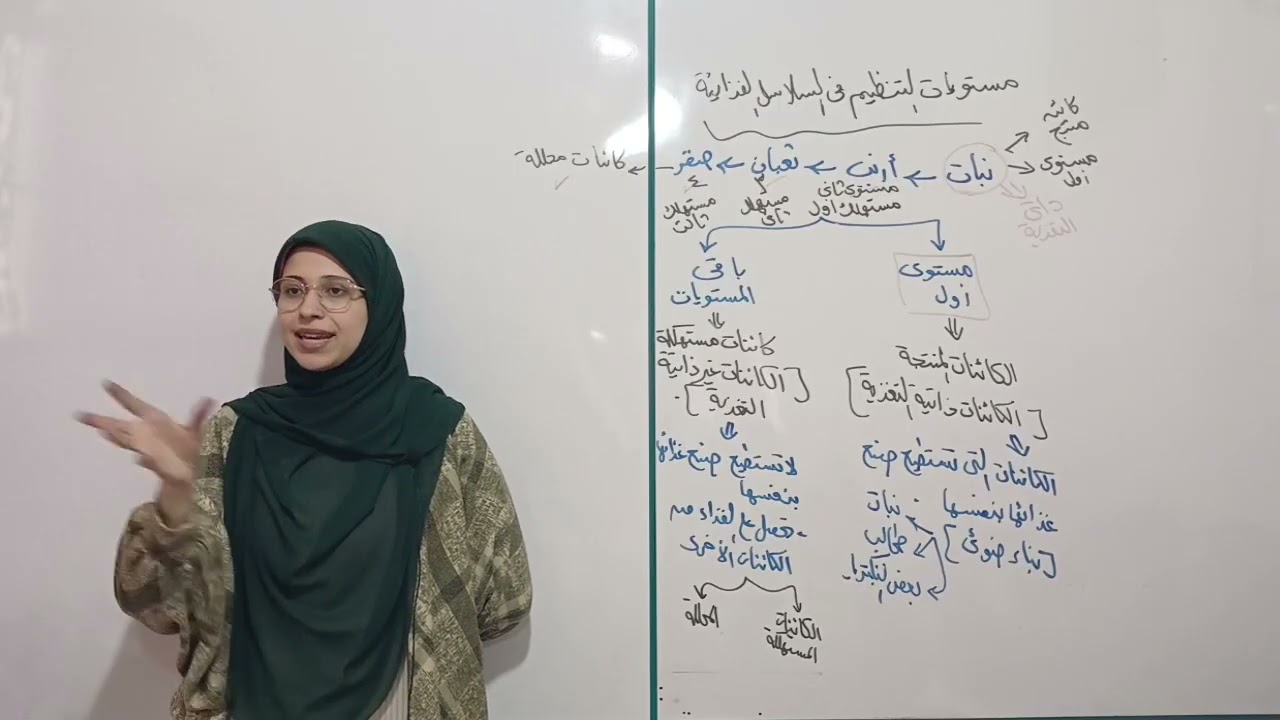 مستويات التنظيم فى السلاسل الغذائية
كائن
منتج
نبات ← أرنب ← ثعبان ← صقر ← كائنات محللة
مستوى
أول
ذاتي
التغذية
مستوى ثانى
مستهلك أول
٣
مستهلك
ثاني
٤
مستهلك
ثالث
مستوى
اول
الكائنات المنتجة
[الكائنات ذاتية التغذية]
الكائنات التى تستطيع صنع
غذائها بنفسها
[بناء ضوئى]
- نبات
طحالب
بعض البكتريا.
باقى
المستويات
كائنات مستهلكة
[الكائنات غير ذاتية
التغذية].
لا تستطيع صنع غذائها
بنفسها
- تحصل على الغذاء من
الكائنات الأخرى
الكائنات
المستهلكة
المحللة